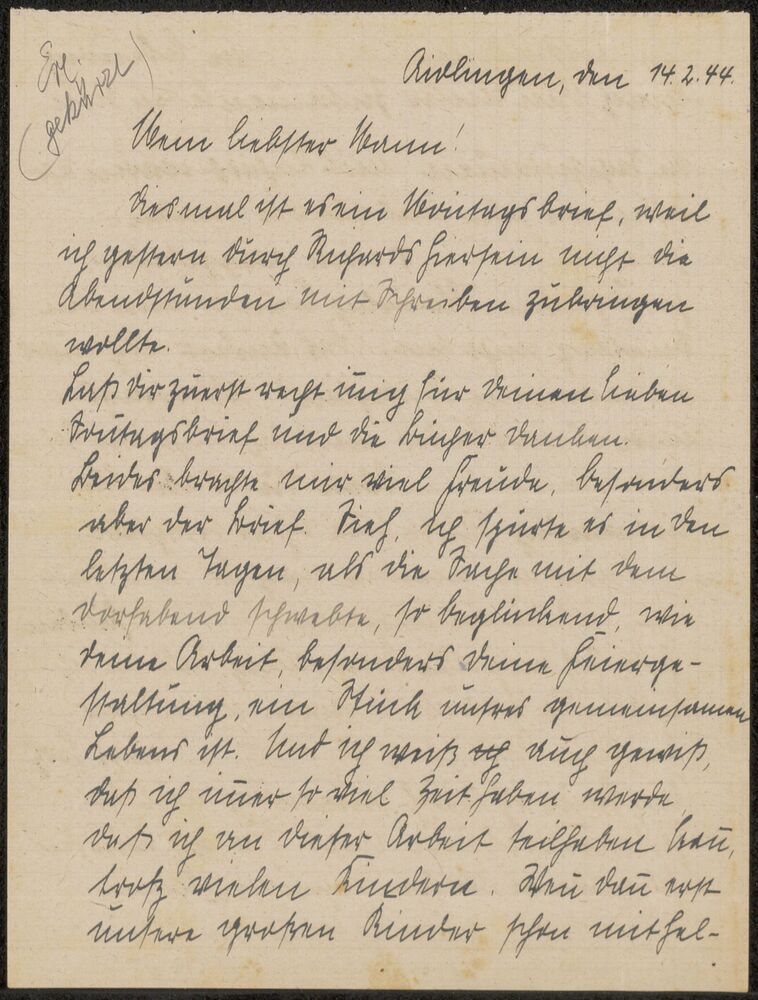 (gekürzt)
Aidlingen, den 14.2.44.
Mein liebster Mann!
Diesmal ist es ein Montagsbrief, weil
ich gestern durch Richards Hiersein nicht die
Abendstunden mit Schreiben zubringen
wollte.
Laß dir zuerst recht innig für deinen lieben
Sonntagsbrief und die Bücher danken.
Beides brachte mir viel Freude, besonders
aber der Brief. Sieh, ich spürte es in den
letzten Tagen, als die Sache mit dem
Dorfabend schwebte, so beglückend, wie
deine Arbeit, besonders deine Feierge-
staltung, ein Stück unsres gemeinsamen
Lebens ist. Und ich weiß auch gewiß,
daß ich im̅er so viel Zeit haben werde,
daß ich an dieser Arbeit teilhaben kan̅,
trotz vielen Kindern. Wen̅ dan̅ erst
unsere großen Kinder schon mithel-